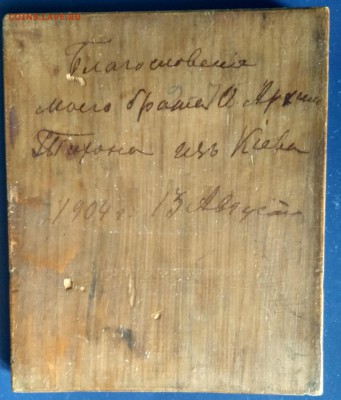 COINS.LAVE.RU
Благословенiе
моего брата О Архим
Тихона изъ Кiева
1904 г. 13 Августа